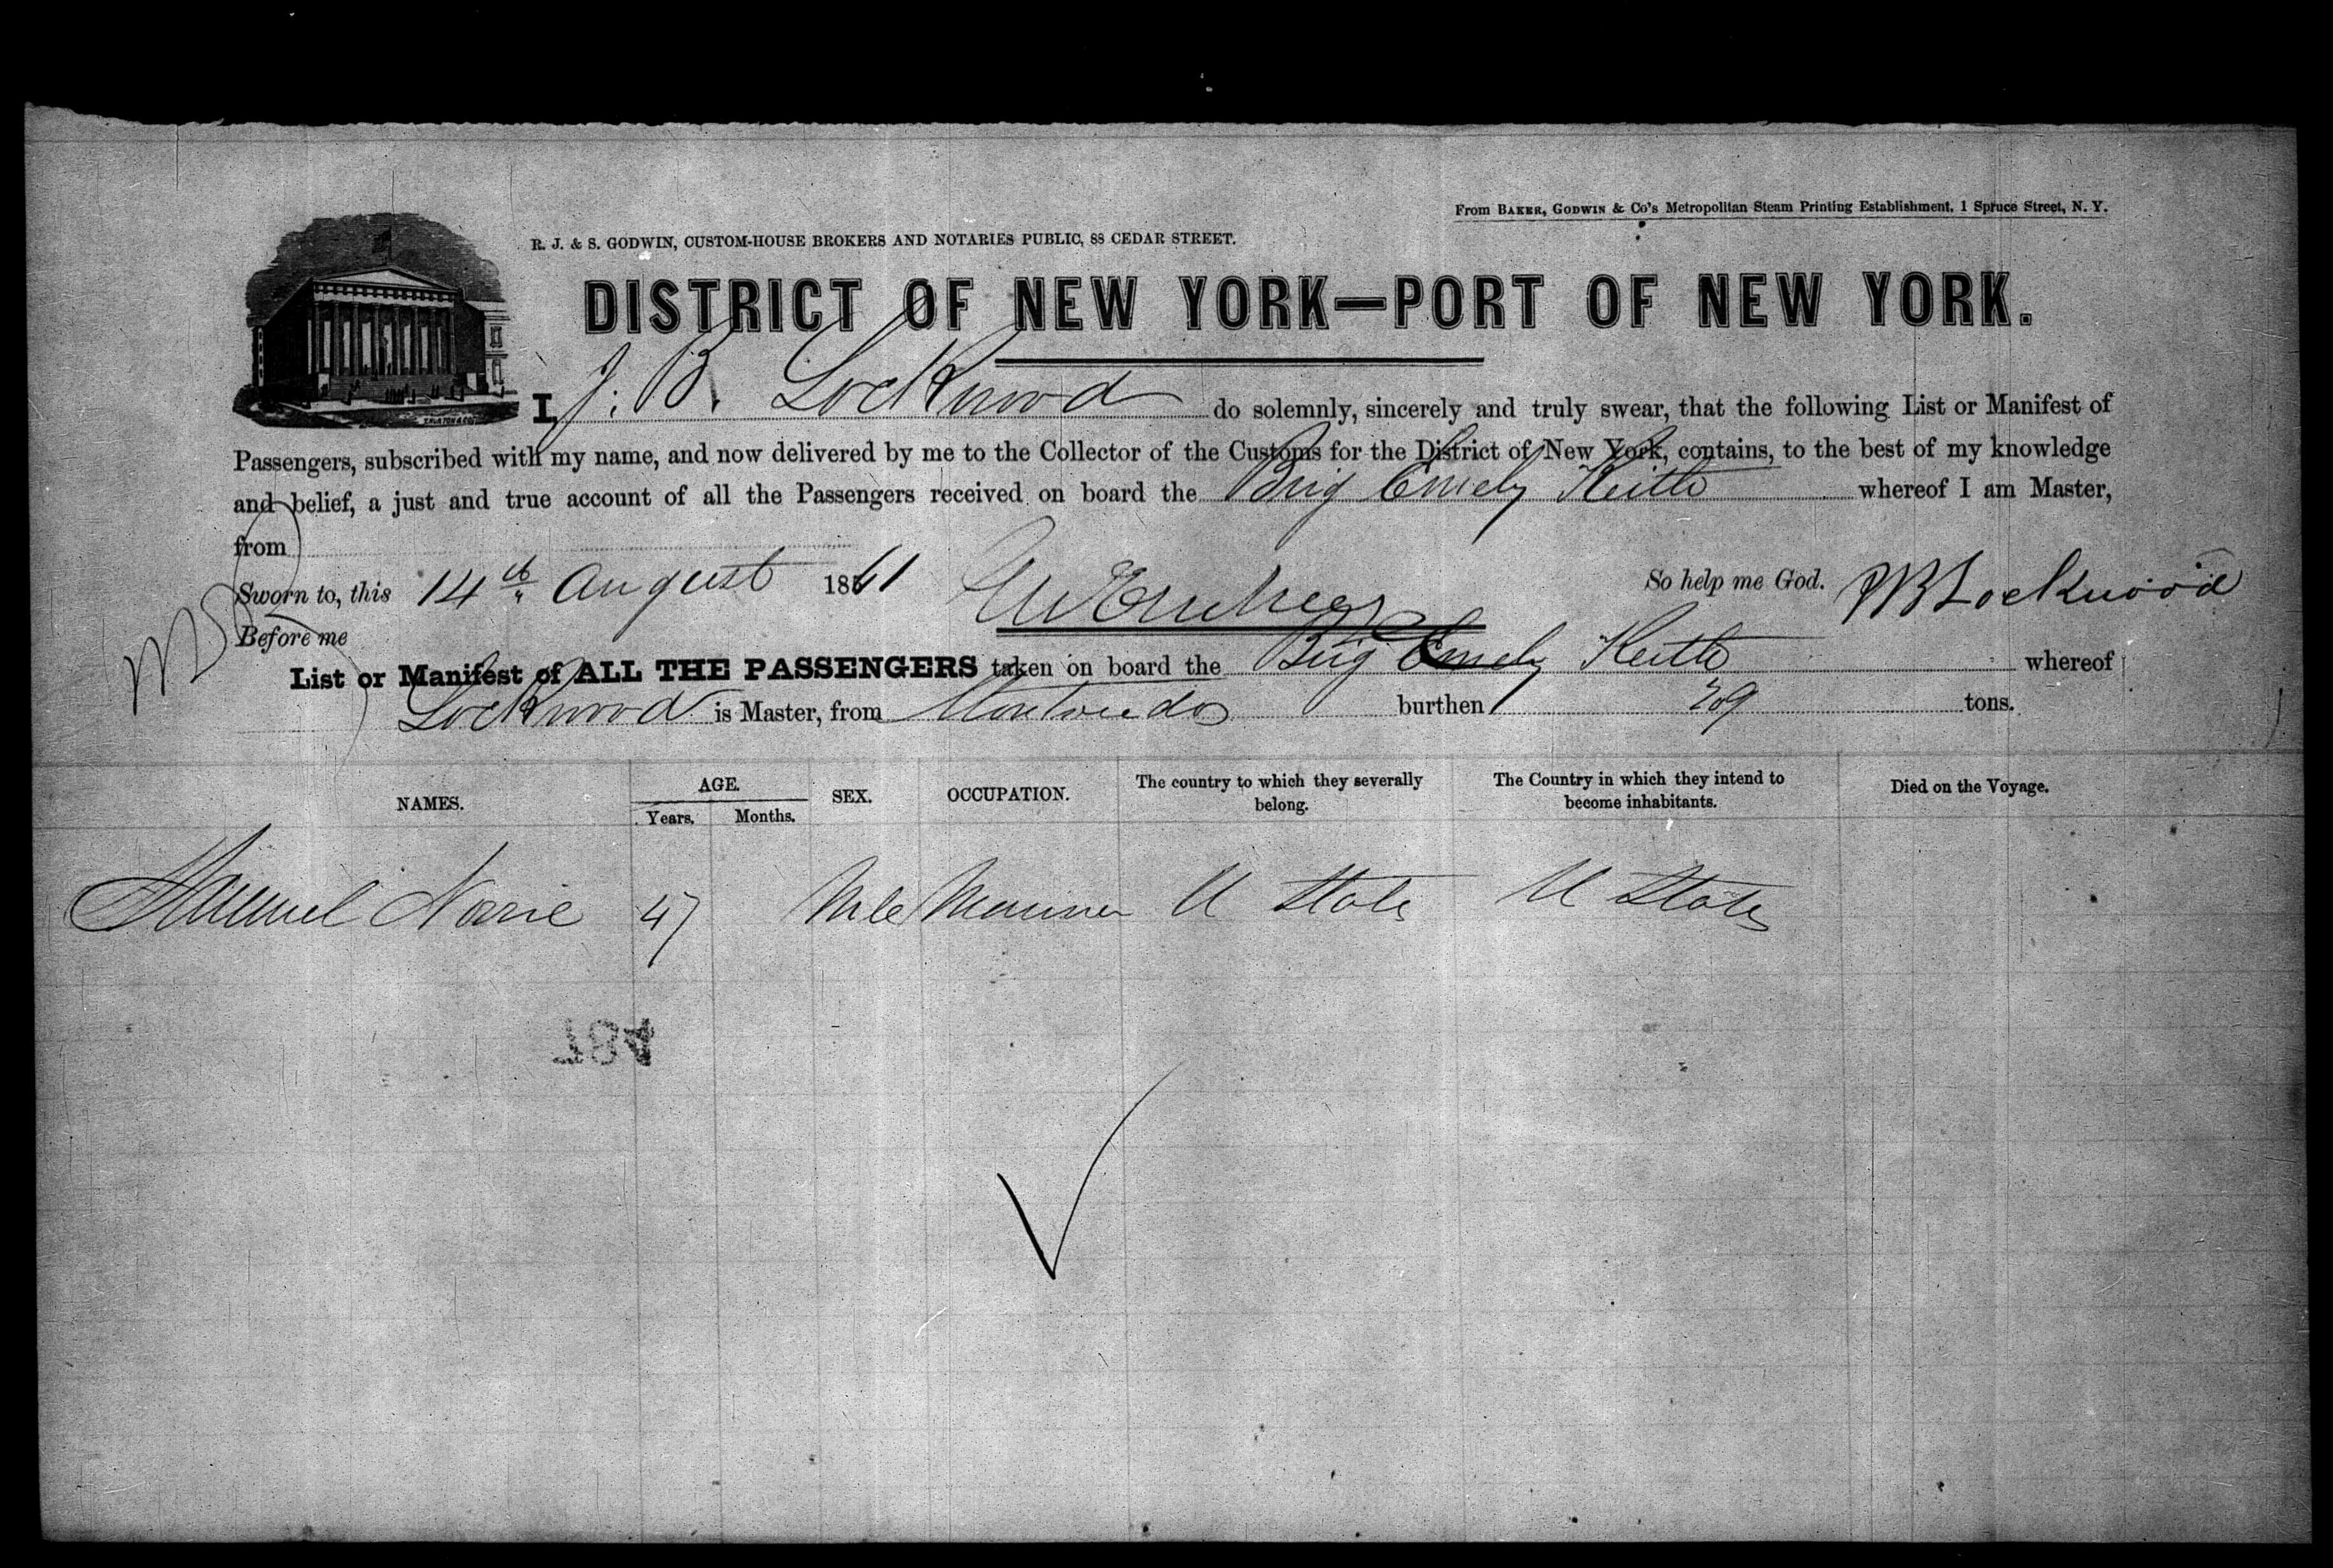 From BAKER, GODWIN & Co's Metropolitan Steam Printing Establishment, 1 Spruce Street, N. Y.
R. J. & S. GODWIN, CUSTOM-HOUSE BROKERS AND NOTARIES PUBLIC, 88 CEDAR STREET.
DISTRICT OF NEW YORK—PORT OF NEW YORK.
I, J. B. Lockwood do solemnly, sincerely and truly swear, that the following List or Manifest of
Passengers, subscribed with my name, and now delivered by me to the Collector of the Customs for the District of New York, contains, to the best of my knowledge
and belief, a just and true account of all the Passengers received on board the Brig Emely Keith whereof I am Master,
from
Sworn to, this 14th August 1861 So help me God. JB Lockwood
Before me
List or Manifest of ALL THE PASSENGERS taken on board the Brig Emely Keith whereof
Lockwood is Master, from burthen 209 tons.
NAMES. AGE. Years. Months. SEX. OCCUPATION. The country to which they severally belong. The Country in which they intend to become inhabitants. Died on the Voyage.
Samuel 47 Mle Mariner U States U States